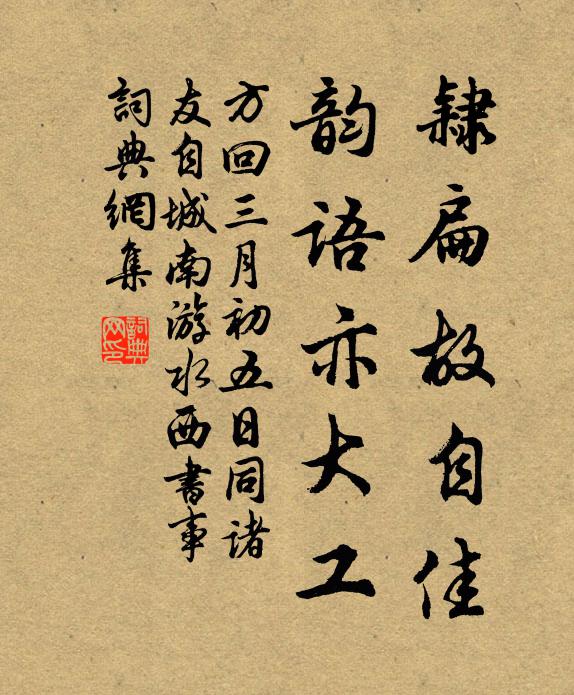 隸扁故自佳
韵語亦大工
方回三月初五日同諸
友自城南游水西書事
詞典網集
詞典
网印